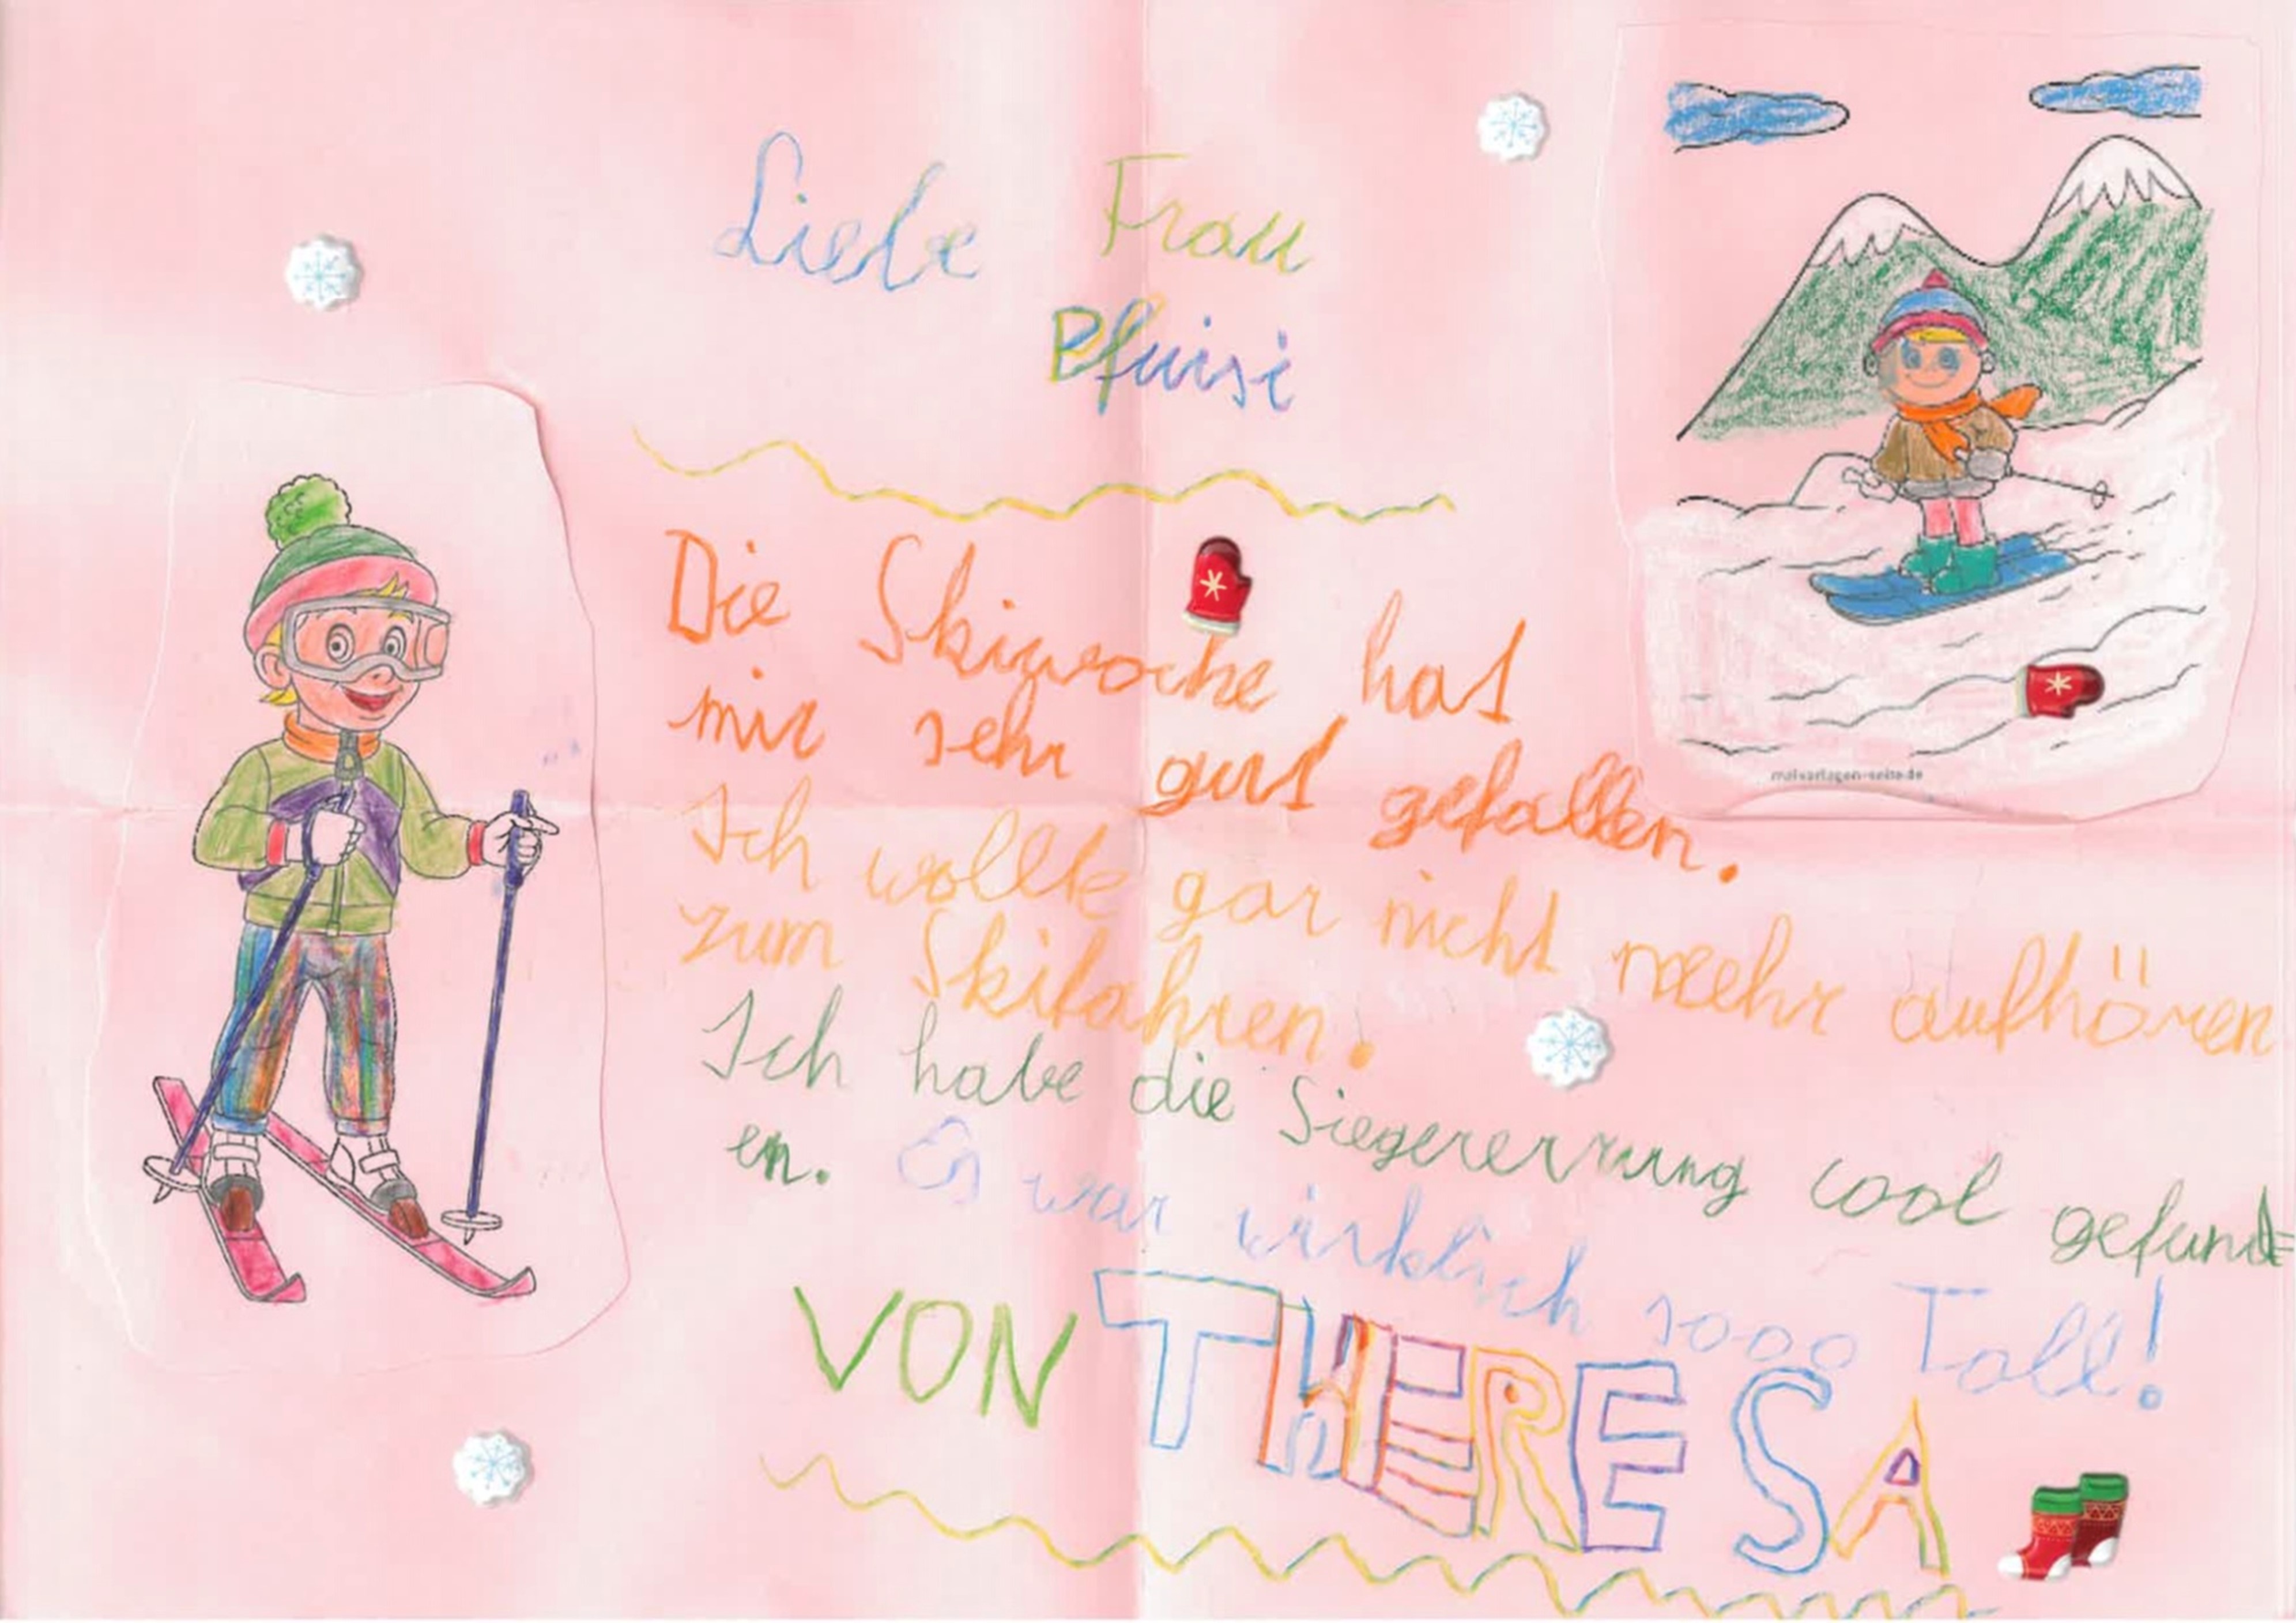 Liebe Frau
Pfurisi
Die Skiwoche hat
mir sehr gut gefallen.
Ich wollte gar nicht meehr aufhören
zum Skifahren.
Ich habe die Siegererrung cool gefund
en. Es war wirklich sooo Toll!
VON THERESA
malvorlagen-seite.de